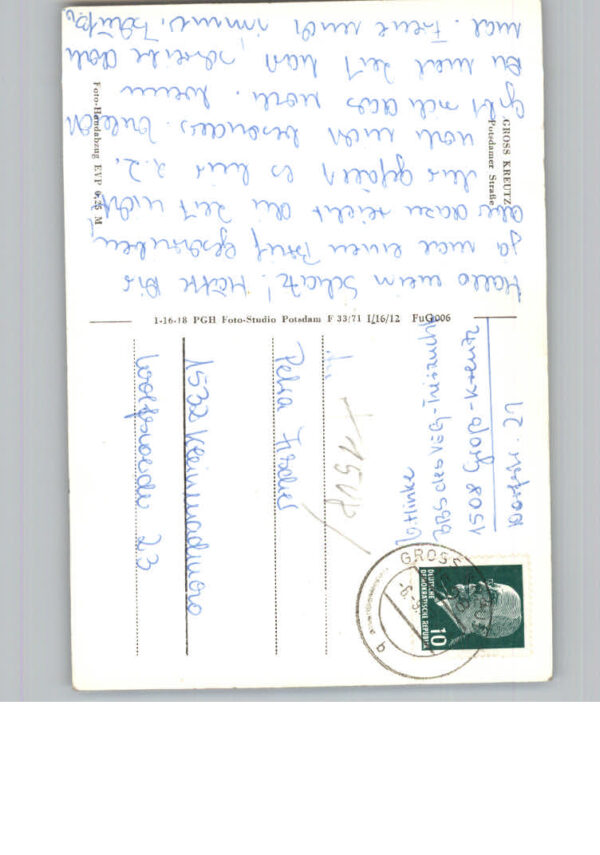 GROSS KREUTZ
Potsdamer Straße
Hallo mein Schatz! Hätte Dir
ja mal einen Brief geschrieben,
aber dazu reicht die Zeit nicht.
gefällt es hier z.Z.
noch nicht besonders.
gibt sich das noch. Wenn
Du mal Zeit hast, schreibe doch
mal. Freue mich immer. Tschüß,
Foto-Handabzug EVP 0,25 M
1-16-18 PGH Foto-Studio Potsdam F 33/71 I/16/12 FuG 006
Hinke
BBS des VEG
1508 Groß-Kreutz
Dorfstr. 21
An
Petra Fischer
1532 Kleinmachnow
Wolfswerder 23
GROSS
DEUTSCHE
DEMOKRATISCHE REPUBLIK
10